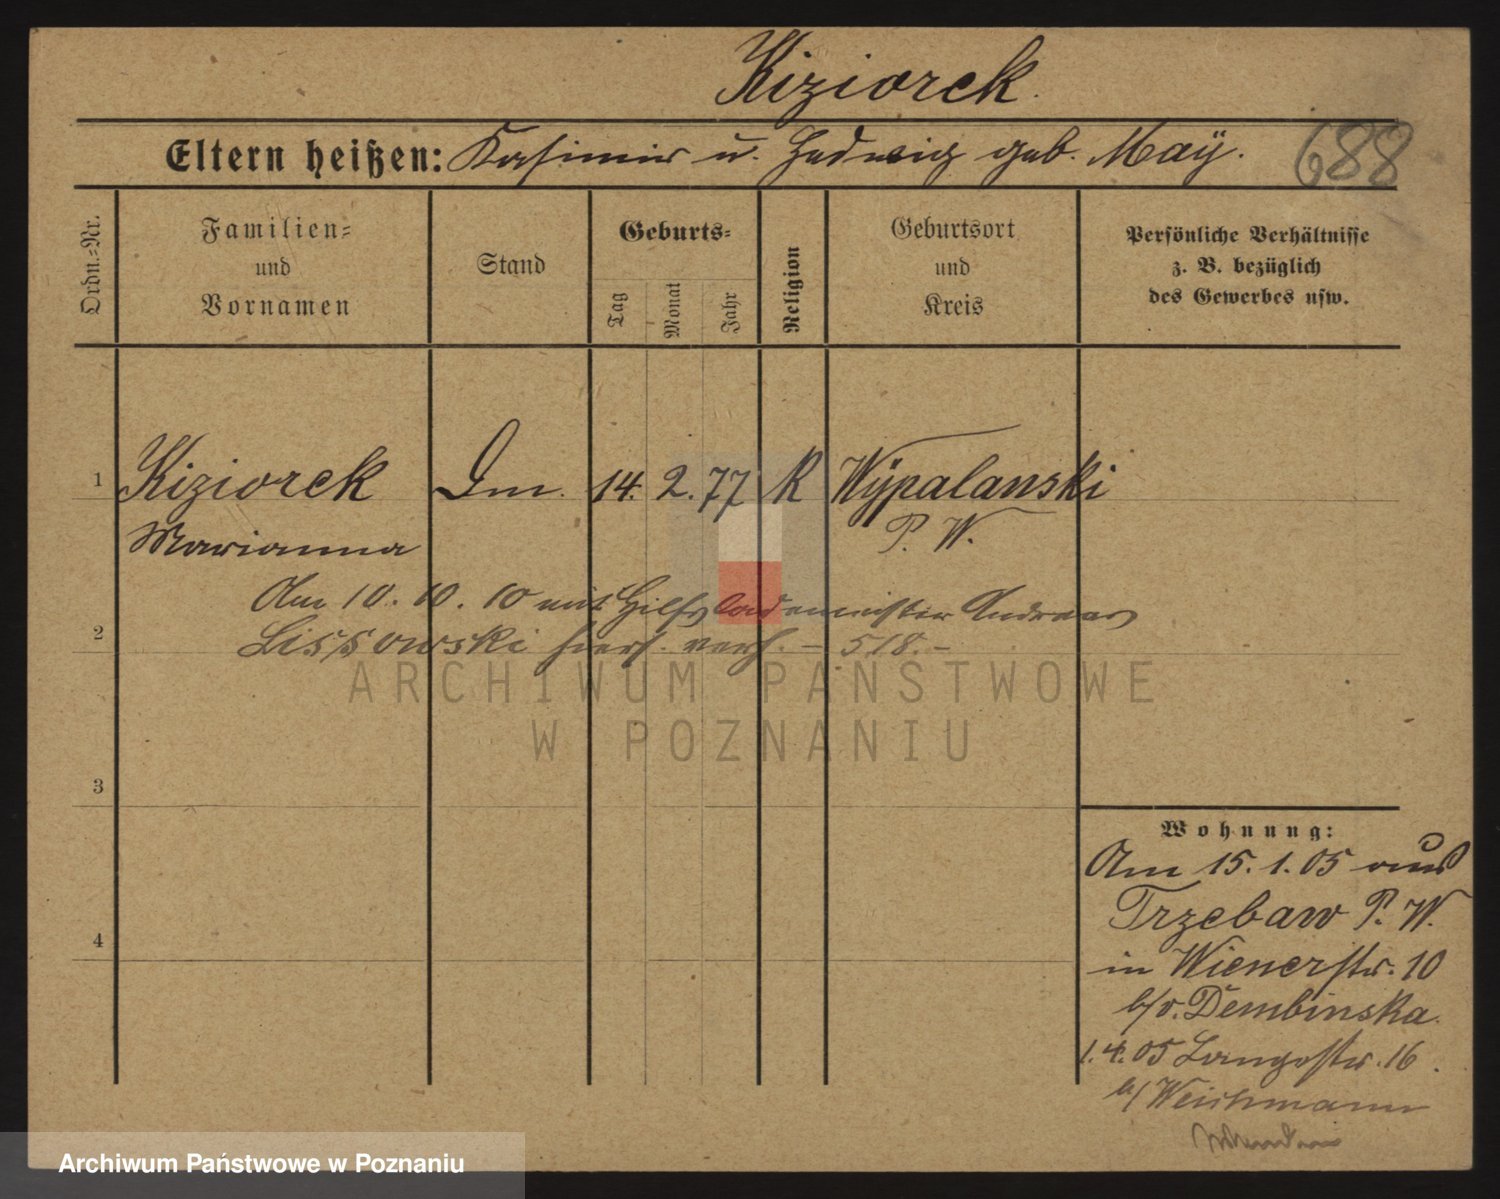 Kiziorek.
Eltern heißen: Kasimir u. Hedwig geb. Maÿ. 688
Ordn.-Nr.
Familien-
und
Vornamen
Stand
Geburts-
Tag
Monat
Jahr
Religion
Geburtsort
und
Kreis
Persönliche Verhältnisse
z. B. bezüglich
des Gewerbes usw.
1 Kiziorek Dm. 14. 2. 77 K Wÿpalanski
Marianna P. W.
Am 10. 10. 10 mit Hilfslademeister Andreas
2 Lissowski hiers. verh. - 518. -
ARCHIWUM PAŃSTWOWE
W POZNANIU
3
Wohnung:
Am 15. 1. 05 aus
Trzebaw P. W.
4
in Wienerstr. 10
b/v. Dembinska.
1. 4. 05 Langestr. 16.
b/ Weichmann
Archiwum Państwowe w Poznaniu